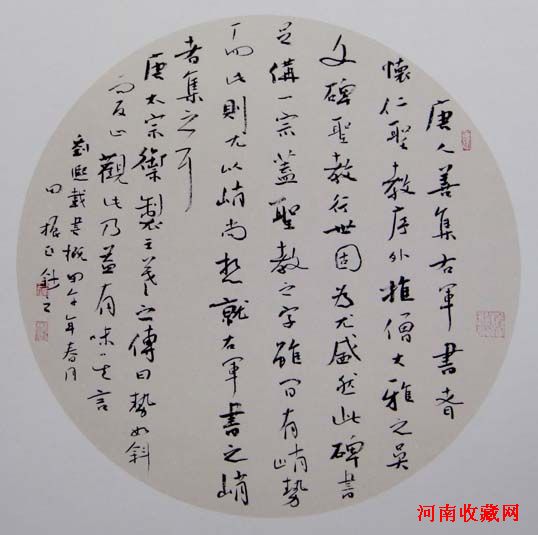 唐人善集右軍書者
懷仁聖教序外推僧大雅之吳
文碑聖教行世固為尤盛然此碑書
足備一宗蓋聖教之字雖間有峭勢
而此則尤以峭尚想就右軍書之峭
者集之耳
唐太宗御製王羲之傳曰勢如斜
而反正觀此乃益有味其言
劉熙載書概 年春月
田振
河南收藏网